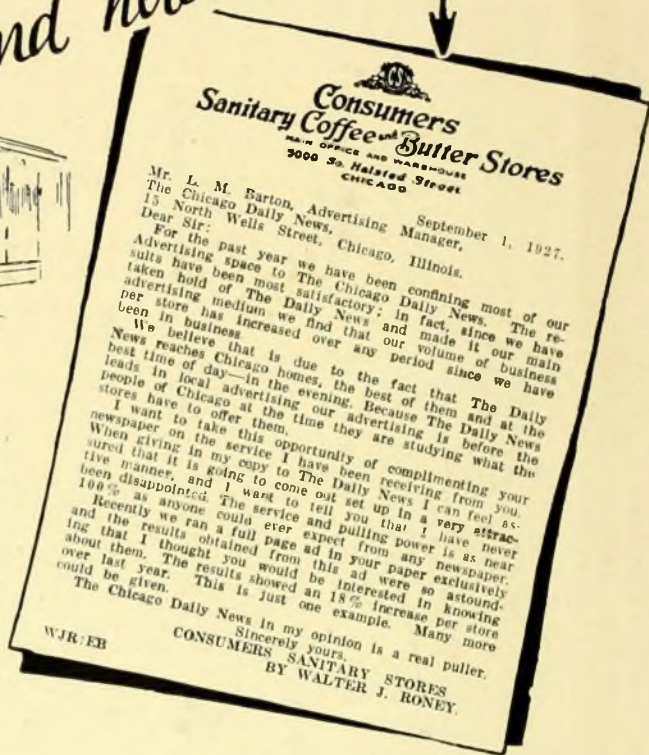 nd
CSS
Consumers
Sanitary Coffee and Butter Stores
MAIN OFFICE AND WAREHOUSE
3000 So. Halsted Street
CHICAGO
September 1, 1927.
Mr. L. M. Barton, Advertising Manager,
The Chicago Daily News,
15 North Wells Street, Chicago, Illinois.
Dear Sir:
For the past year we have been confining most of our
Advertising space to The Chicago Daily News. The re-
sults have been most satisfactory; in fact, since we have
taken hold of The Daily News and made it our main
advertising medium we find that our volume of business
per store has increased over any period since we have
been in business.
We believe that is due to the fact that The Daily
News reaches Chicago homes, the best of them and at the
best time of day—in the evening. Because The Daily News
leads in local advertising our advertising is before the
people of Chicago at the time they are studying what the
stores have to offer them.
I want to take this opportunity of complimenting your
newspaper on the service I have been receiving from you.
When giving in my copy to The Daily News I can feel as-
sured that it is going to come out set up in a very attrac-
tive manner, and I want to tell you that I have never
been disappointed. The service and pulling power is as near
100% as anyone could ever expect from any newspaper.
Recently we ran a full page ad in your paper exclusively
and the results obtained from this ad were so astound-
ing that I thought you would be interested in knowing
about them. The results showed an 18% increase per store
over last year. This is just one example. Many more
could be given.
The Chicago Daily News in my opinion is a real puller.
Sincerely yours,
CONSUMERS SANITARY STORES
BY WALTER J. RONEY.
WJR:EB